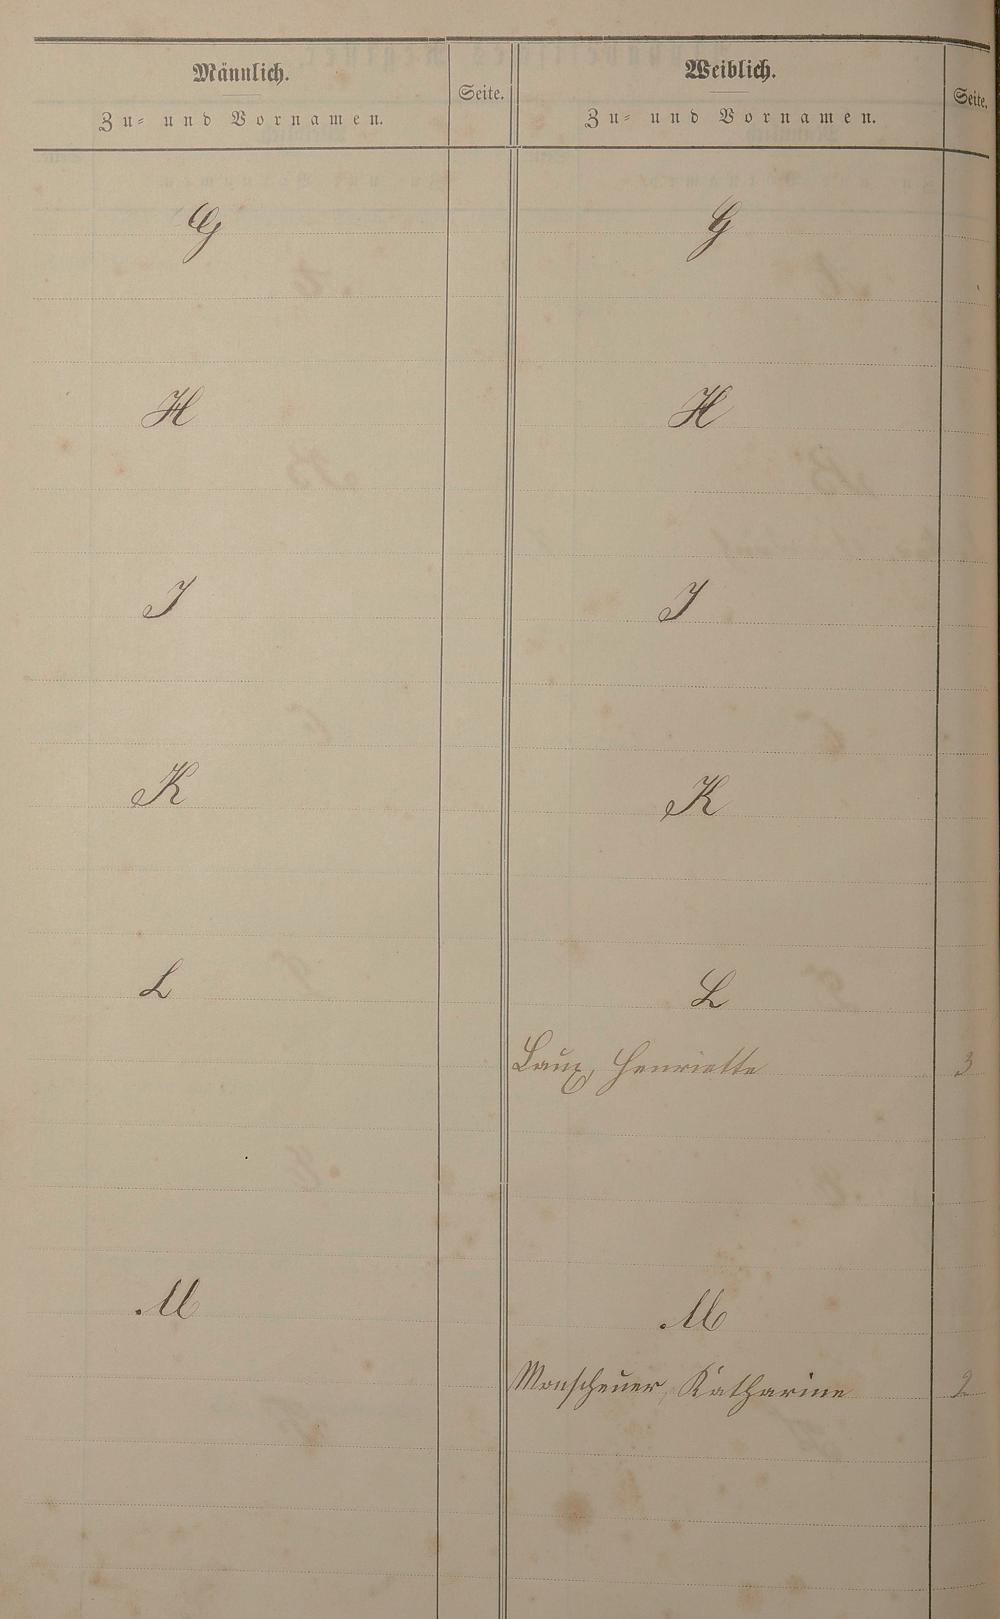 Männlich.
Zu- und Vornamen.
Seite.
Weiblich.
Zu- und Vornamen.
Seite.
G
G
H
H
I
I
K
K
L
L
Laux, Henriette 3
M
M
Monscheuer, Katharine 2